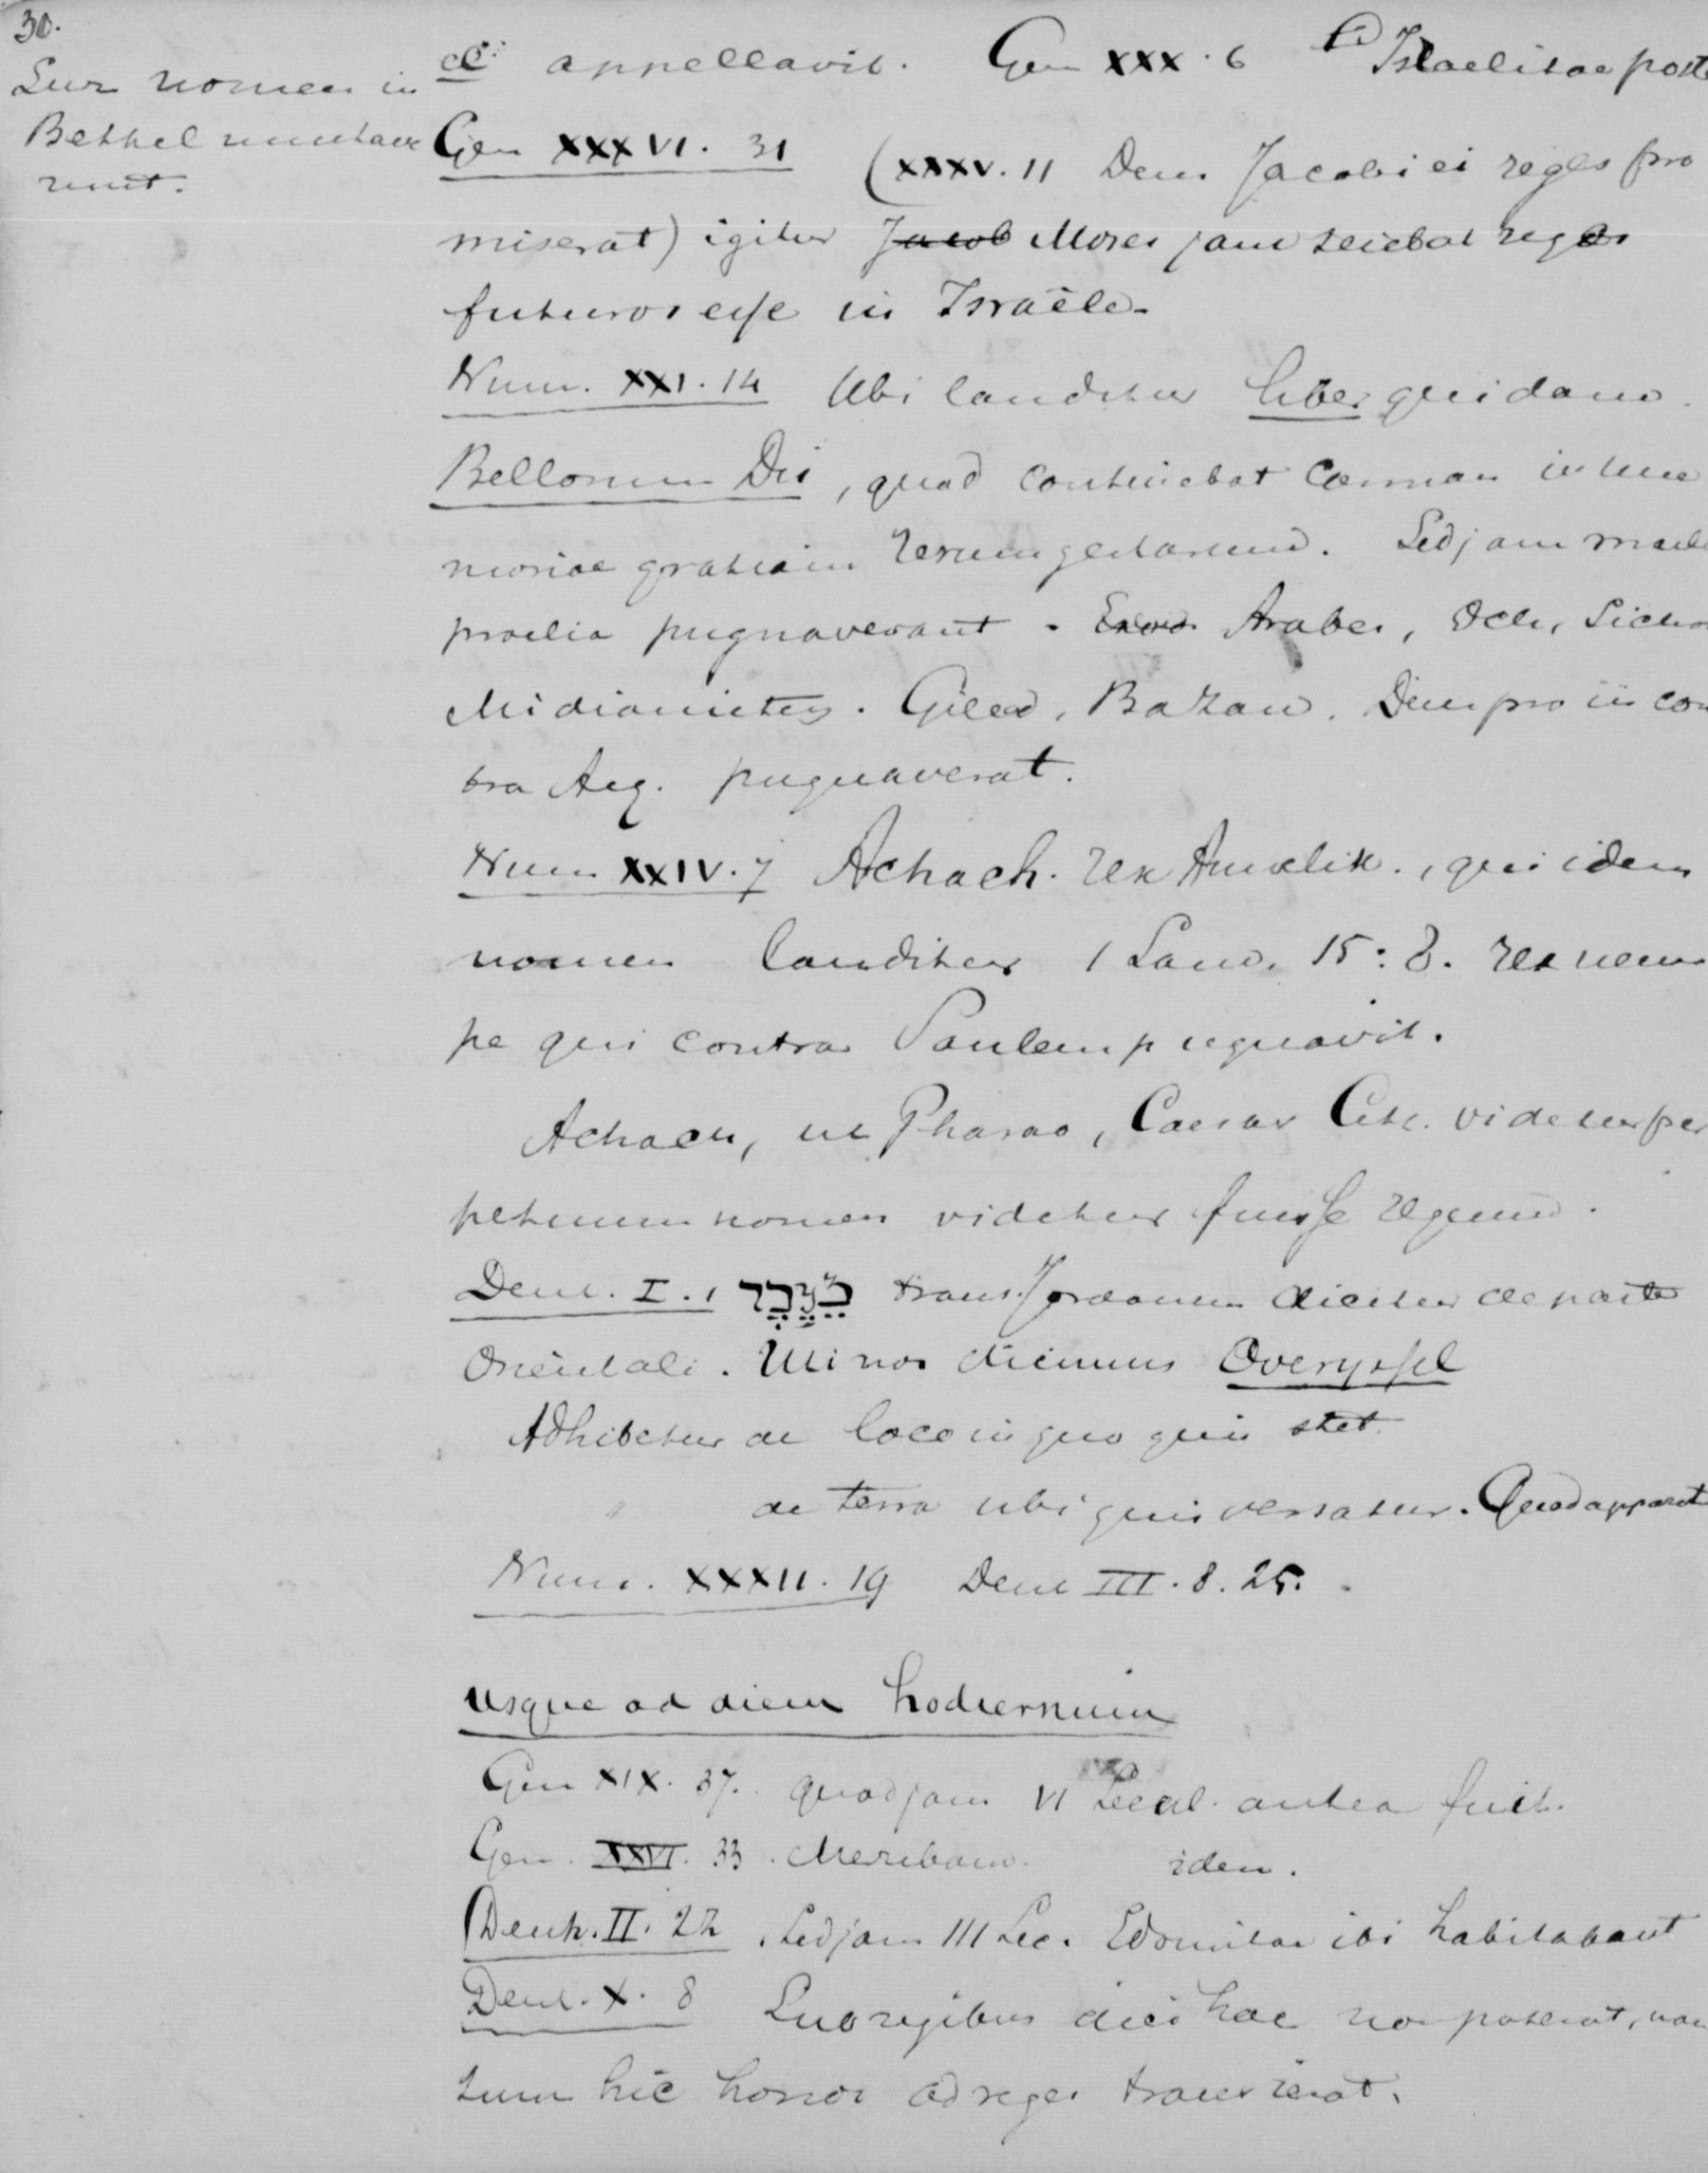 30.
Luz nomen in
Bethel mutave
runt.
appellavit. Gen XXX. 6 Israelitae poste
Gen XXXVI. 31 (XXXV. 11 Deus Jacobi ei reges pro
miserat) igitur Jacob Moses jam sciebat reges
futuros esse in Israële.
Num. XXI. 14 Ubi lauditur liber quidam
Bellorum Dei, quod continebat carmen in me
moriae gratiam rerum gestarum. Sed jam
proelia pugnaverant. Arabes, Sicho
Midianietes. Gilead, Bazan. Deus pro iis con
tra Aeg. pugnaverat.
Num XXIV. 7 Achach. rex Amalek., qui idem
nomen lauditur 1 Sam. 15:8. rex nem
pe qui contra Saulem pugnavit.
Achach, ut Pharao, Caesar etc. videtur per
petuum nomen videtur fuisse regum.
Deut. I. 1 trans Jordanem dicitur de parte
Orientali. Uti nos dicimus Overyssel
Adhibetur de loco in quo quis stet.
" de terra ubi quis versatur. Quod apparet
Num. XXXII. 19 Deut III. 8. 25.
usque ad diem hodiernum
Gen XIX. 37. quod jam VI Secul. antea fuit.
Gen. XXVI. 33. idem.
Deut. II. 22. Sed jam III Sec. Edomitae ibi habitabant
Deut. X. 8 Sub regibus dici hoc non poterat, nam
tum hic honor ad reges transierat.